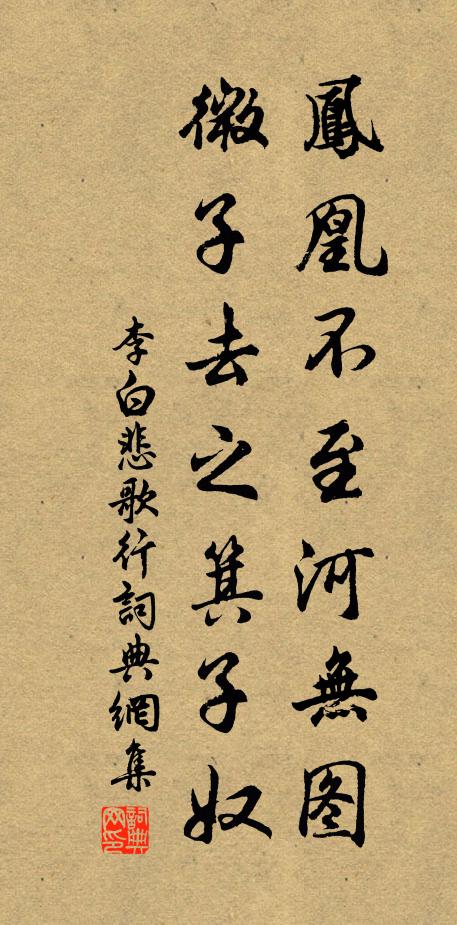 鳳凰不至河無图
微子去之箕子奴
李白悲歌行詞典網集
詞典网印